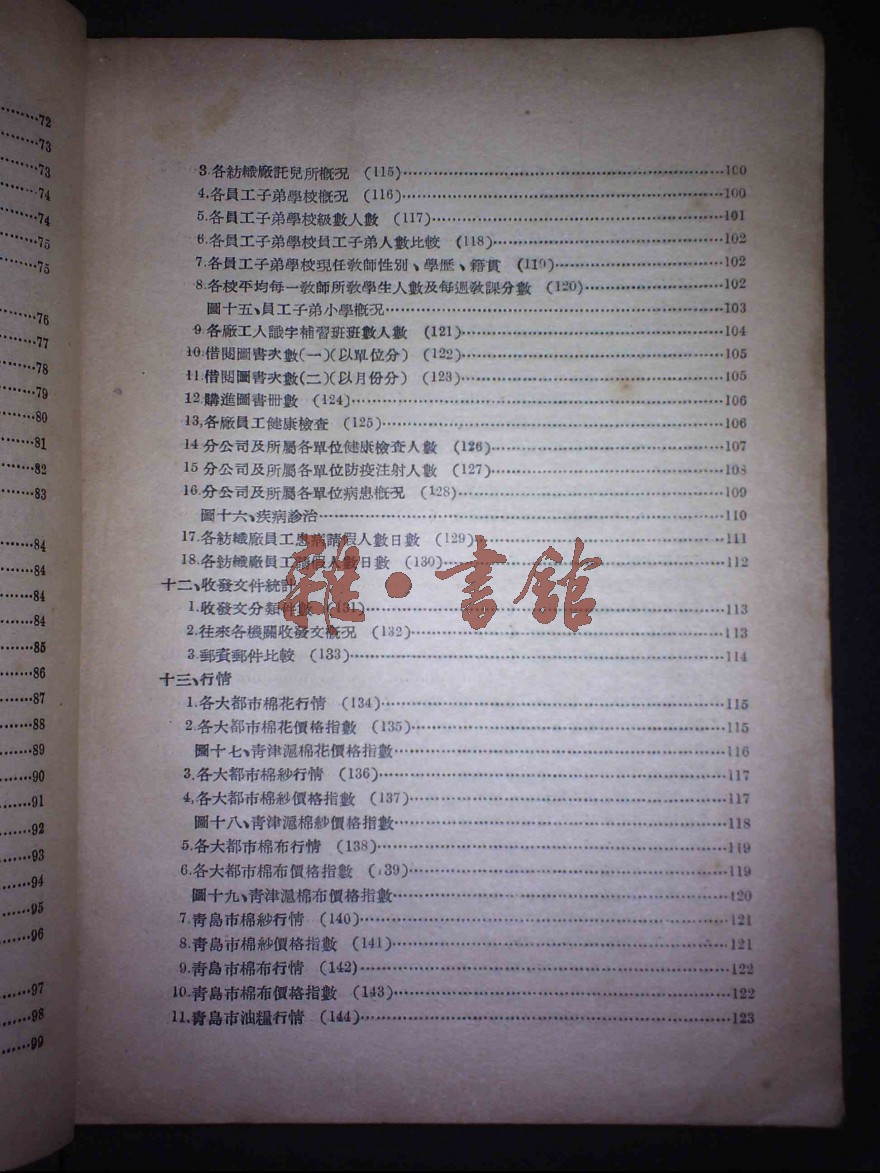 72
73
73
74
74
75
75
76
77
78
79
80
81
82
83
84
84
84
84
85
86
87
88
89
90
91
92
93
94
95
96
97
98
99
3.各紡織廠託兒所概况 (115)……100
4.各員工子弟學校概况 (116)……100
5.各員工子弟學校級數人數 (117)……101
6.各員工子弟學校員工子弟人數比較 (118)……102
7.各員工子弟學校現任教師性別、學歷、籍貫 (119)……102
8.各校平均每一教師所教學生人數及每週教課分數 (120)……102
圖十五、員工子弟小學概况……103
9.各廠工人識字補習班班數人數 (121)……104
10.借閱圖書次數(一)(以單位分) (122)……105
11.借閱圖書次數(二)(以月份分) (123)……105
12.購進圖書冊數 (124)……106
13,各廠員工健康檢查 (125)……106
14 分公司及所屬各單位健康檢查人數 (126)……107
15 分公司及所屬各單位防疫注射人數 (127)……108
16.分公司及所屬各單位病患概况 (128)……109
圖十六、疾病診治……110
17.各紡織廠員工患病請假人數日數 (129)……111
18.各紡織廠員工請假人數日數 (130)……112
十二、收發文件統計
1.收發文分類件數 (131)……113
2.往來各機關收發文概况 (132)……113
3.郵資郵件比較 (133)……114
十三、行情
1.各大都市棉花行情 (134)……115
2.各大都市棉花價格指數 (135)……115
圖十七、青津滬棉花價格指數……116
3,各大都市棉紗行情 (136)……117
4,各大都市棉紗價格指數 (137)……117
圖十八、青津滬棉紗價格指數……118
5.各大都市棉布行情 (138)……119
6.各大都市棉布價格指數 (139)……119
圖十九、青津滬棉布價格指數……120
7.青島市棉紗行情 (140)……121
8.青島市棉紗價格指數 (141)……121
9.青島市棉布行情 (142)……122
10.青島市棉布價格指數 (143)……122
11.青島市油糧行情 (144)……123
雜·書館